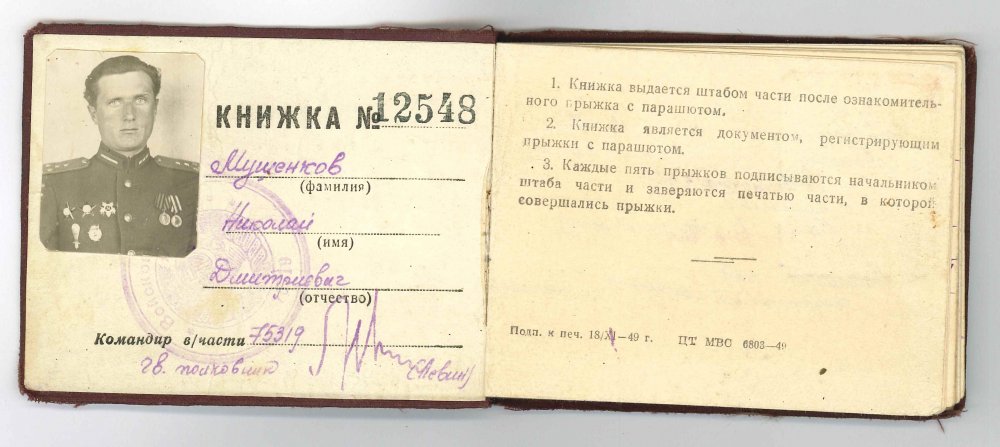 КНИЖКА № 12548
Мушенков
(фамилия)
Николай
(имя)
Дмитриевич
(отчество)
Командир в/части 75319
гв. полковник (Левин)
1. Книжка выдается штабом части после ознакомитель-
ного прыжка с парашютом.
2. Книжка является документом, регистрирующим
прыжки с парашютом.
3. Каждые пять прыжков подписываются начальником
штаба части и заверяются печатью части, в которой
совершались прыжки.
Подп. к печ. 18/XI—49 г. ЦТ МВС 6803—49